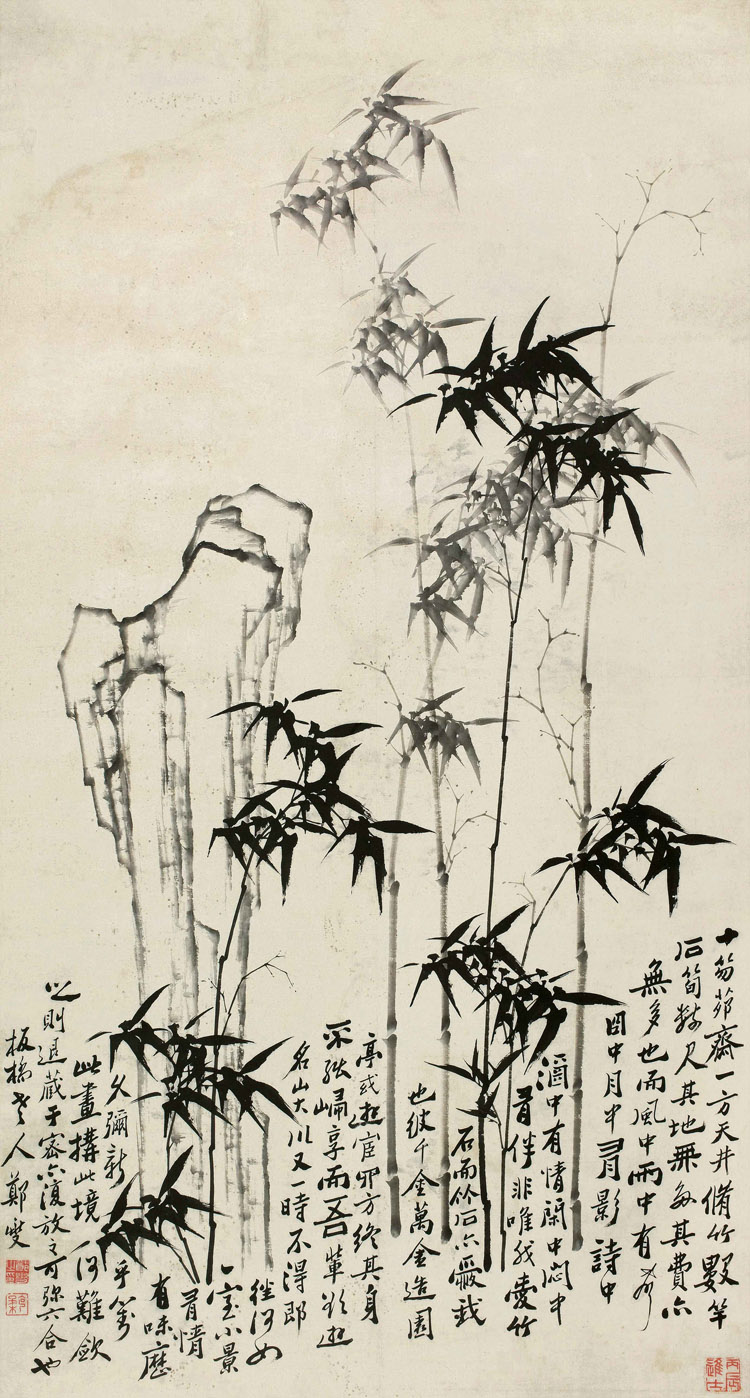 十笏茆齋一方天井脩竹數竿
石筍數尺其地無多其費亦
無多也而風中雨中有聲
日中月中有影詩中
酒中有情閑中悶中
有伴非唯我愛竹
石而竹石亦愛我
也彼千金萬金造園
亭或遊宦四方終其身
不能歸享而吾輩欲遊
名山大川又一時不得即
往何如
一室小景
有情
有味歷
久彌新乎對
此畫構此境何難歛
之則退藏于密亦復放之可弥六合也
板橋老人鄭燮
丙辰進士